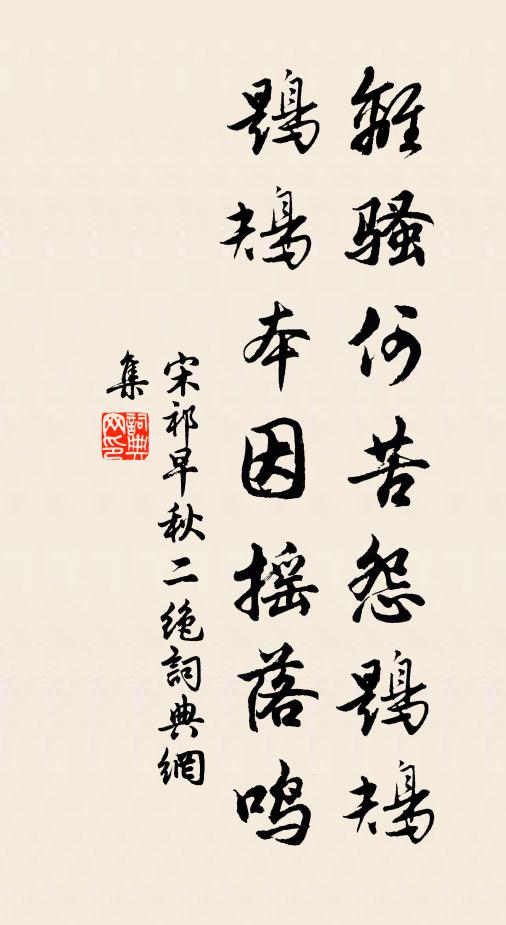 離騷何苦怨鶗鴂
鶗鴂本因摇落鳴
宋祁早秋二絶詞典網
集
詞典网印